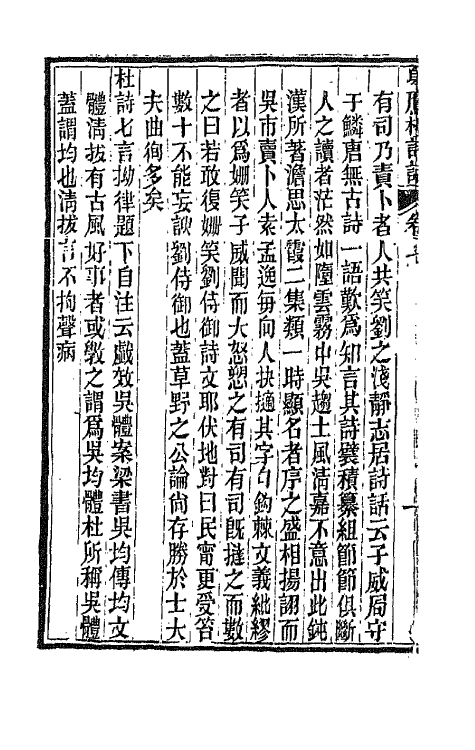 有司乃責卜者人共笑劉之淺靜志居詩話云子威局守
于鱗唐無古詩一語歎爲知言其詩襞積纂組節節俱斷
人之讀者茫然如墮雲霧中吳趨士風淸嘉不意出此鈍
漢所著澹思太霞二集類一時顯名者序之盛相揚詡而
吳市賣卜人素孟逸每向人抉擿其字句鈎棘文義紕繆
者以爲姍笑子威聞而大怒愬之有司有司旣撻之而數
之曰若敢復姍笑劉侍御詩文耶伏地對曰民寗更受笞
數十不能妄諛劉侍御也蓋草野之公論尙存勝於士大
夫曲徇多矣
杜詩七言拗律題下自注云戲效吳體案梁書吳均傳均文
體淸拔有古風好事者或斆之謂爲吳均體杜所稱吳體
蓋謂均也淸拔言不拘聲病